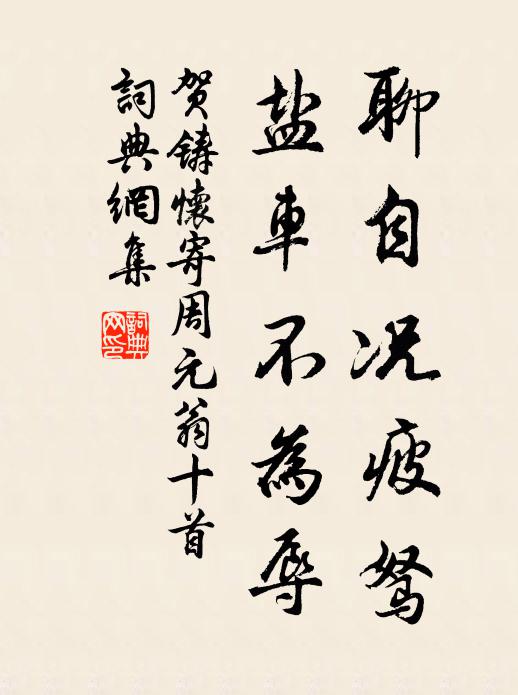 聊自况疲驽
盐車不為辱
贺鑄懷寄周元翁十首
詞典網集
詞典
网印